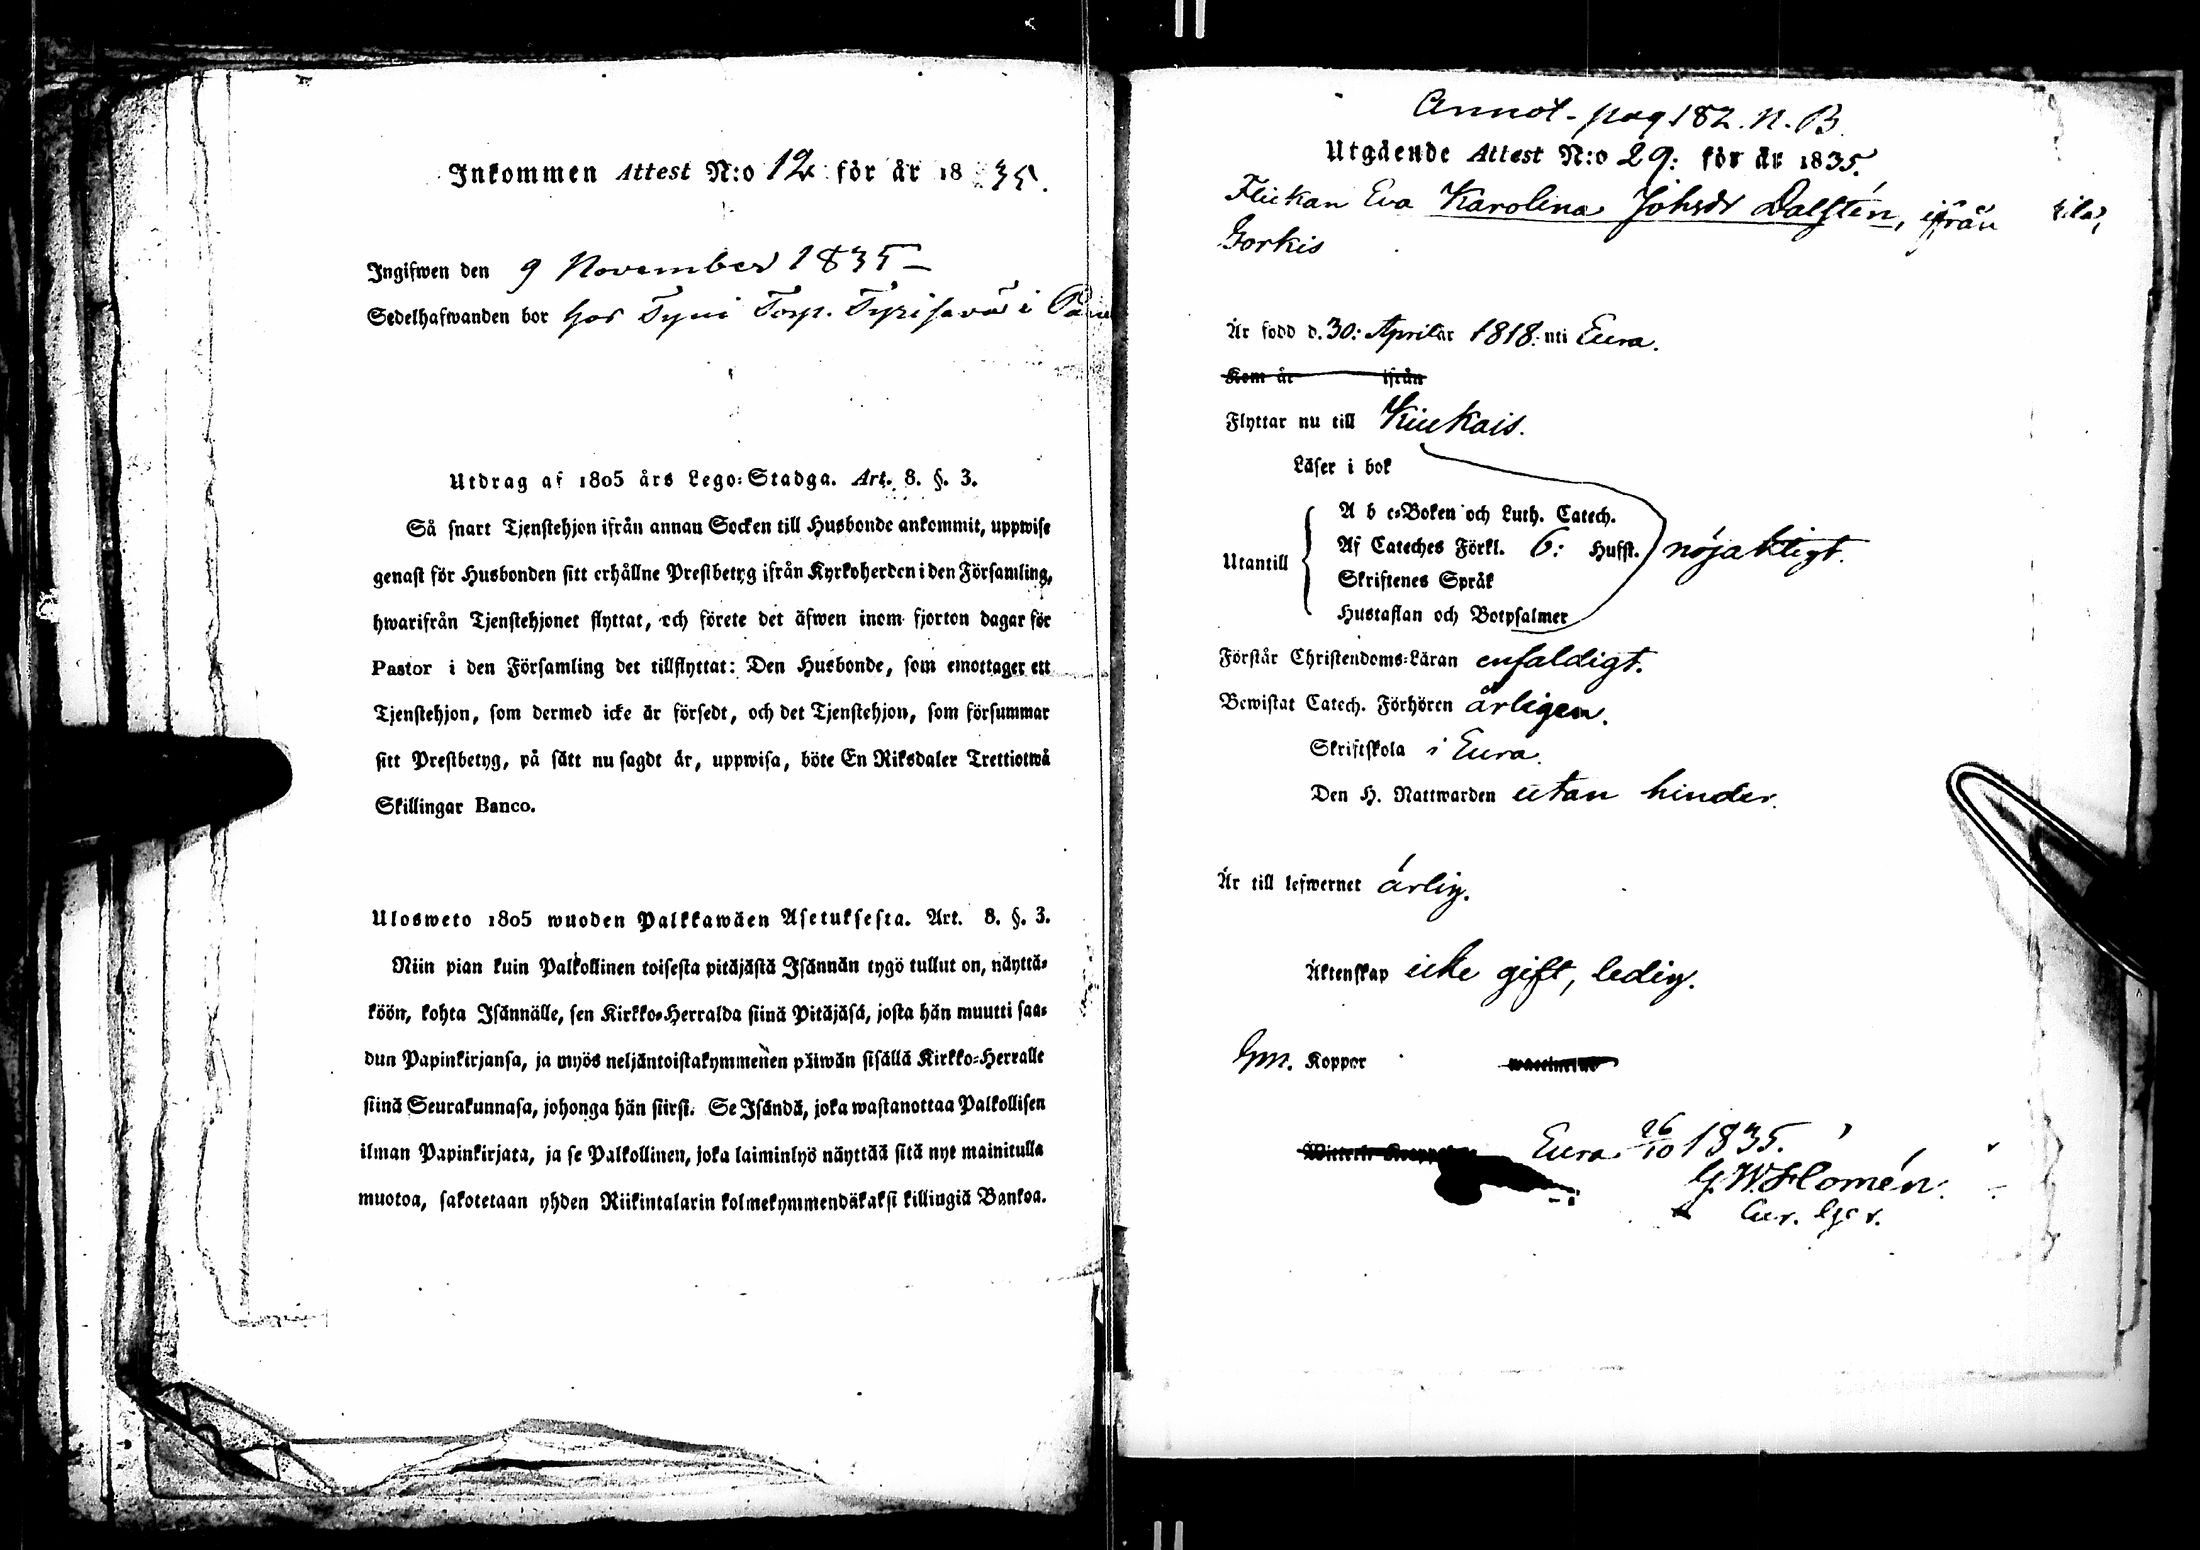 Inkommen Attest N:o 12 för år 1835.
Ingifwen den 9 November 1835
Sedelhafwanden bor hos Tyni Torp. i
Utdrag af 1805 års Lego-Stadga. Art. 8. §. 3.
Så snart Tjenstehjon ifrån annan Socken till Husbonde ankommit, uppwise
genast för Husbonden sitt erhållne Prestbetyg ifrån Kyrkoherden i den Församling,
hwarifrån Tjenstehjonet flyttat, och förete det äfwen inom fjorton dagar för
Pastor i den Församling det tillflyttat: Den Husbonde, som emottager ett
Tjenstehjon, som dermed icke är försedt, och det Tjenstehjon, som försummar
sitt Prestbetyg, på sätt nu sagdt är, uppwisa, böte En Riksdaler Trettiotwå
Skillingar Banco.
Ulosweto 1805 wuoden Palkkawäen Asetuksesta. Art. 8. §. 3.
Niin pian kuin Palkollinen toisesta pitäjästä Isännän tygö tullut on, näyttä-
köön, kohta Isännälle, sen Kirkko-Herralda siinä Pitäjäsä, josta hän muutti saa-
dun Papinkirjansa, ja myös neljäntoistakymmenen päiwän sisällä Kirkko-Herralle
siinä Seurakunnasa, johonga hän siirsi. Se Isändä, joka wastanottaa Palkollisen
ilman Papinkirjata, ja se Palkollinen, joka laiminlyö näyttää sitä nyt mainitulla
muotoa, sakotetaan yhden Riikintalarin kolmekymmendäkaksi killingiä Bankoa.
Annot. pag 182. N. B.
Utgående Attest N:o 29: för år 1835.
Flickan Eva Karolina Johsdr Dalstén, ifrån
Gorkis
Är född d. 30: April år 1818: uti Eura.
Kom år ifrån
Flyttar nu till Kiukais.
Läser i bok
A b c-Boken och Luth. Catech.
Af Cateches Förkl. 6: Hufst. nöjaktigt.
Utantill
Skriftenes Språk
Hustaflan och Botpsalmer
Förstår Christendoms-Läran enfaldigt.
Bewistat Catech. Förhören årligen.
Skriftskola i Eura.
Den H. Nattwarden utan hinder.
Är till lefwernet ärlig.
Äktenskap icke gift, ledig.
Gm. Koppor vaccinerad
Eura 26/10 1835.
G. W. Homén.